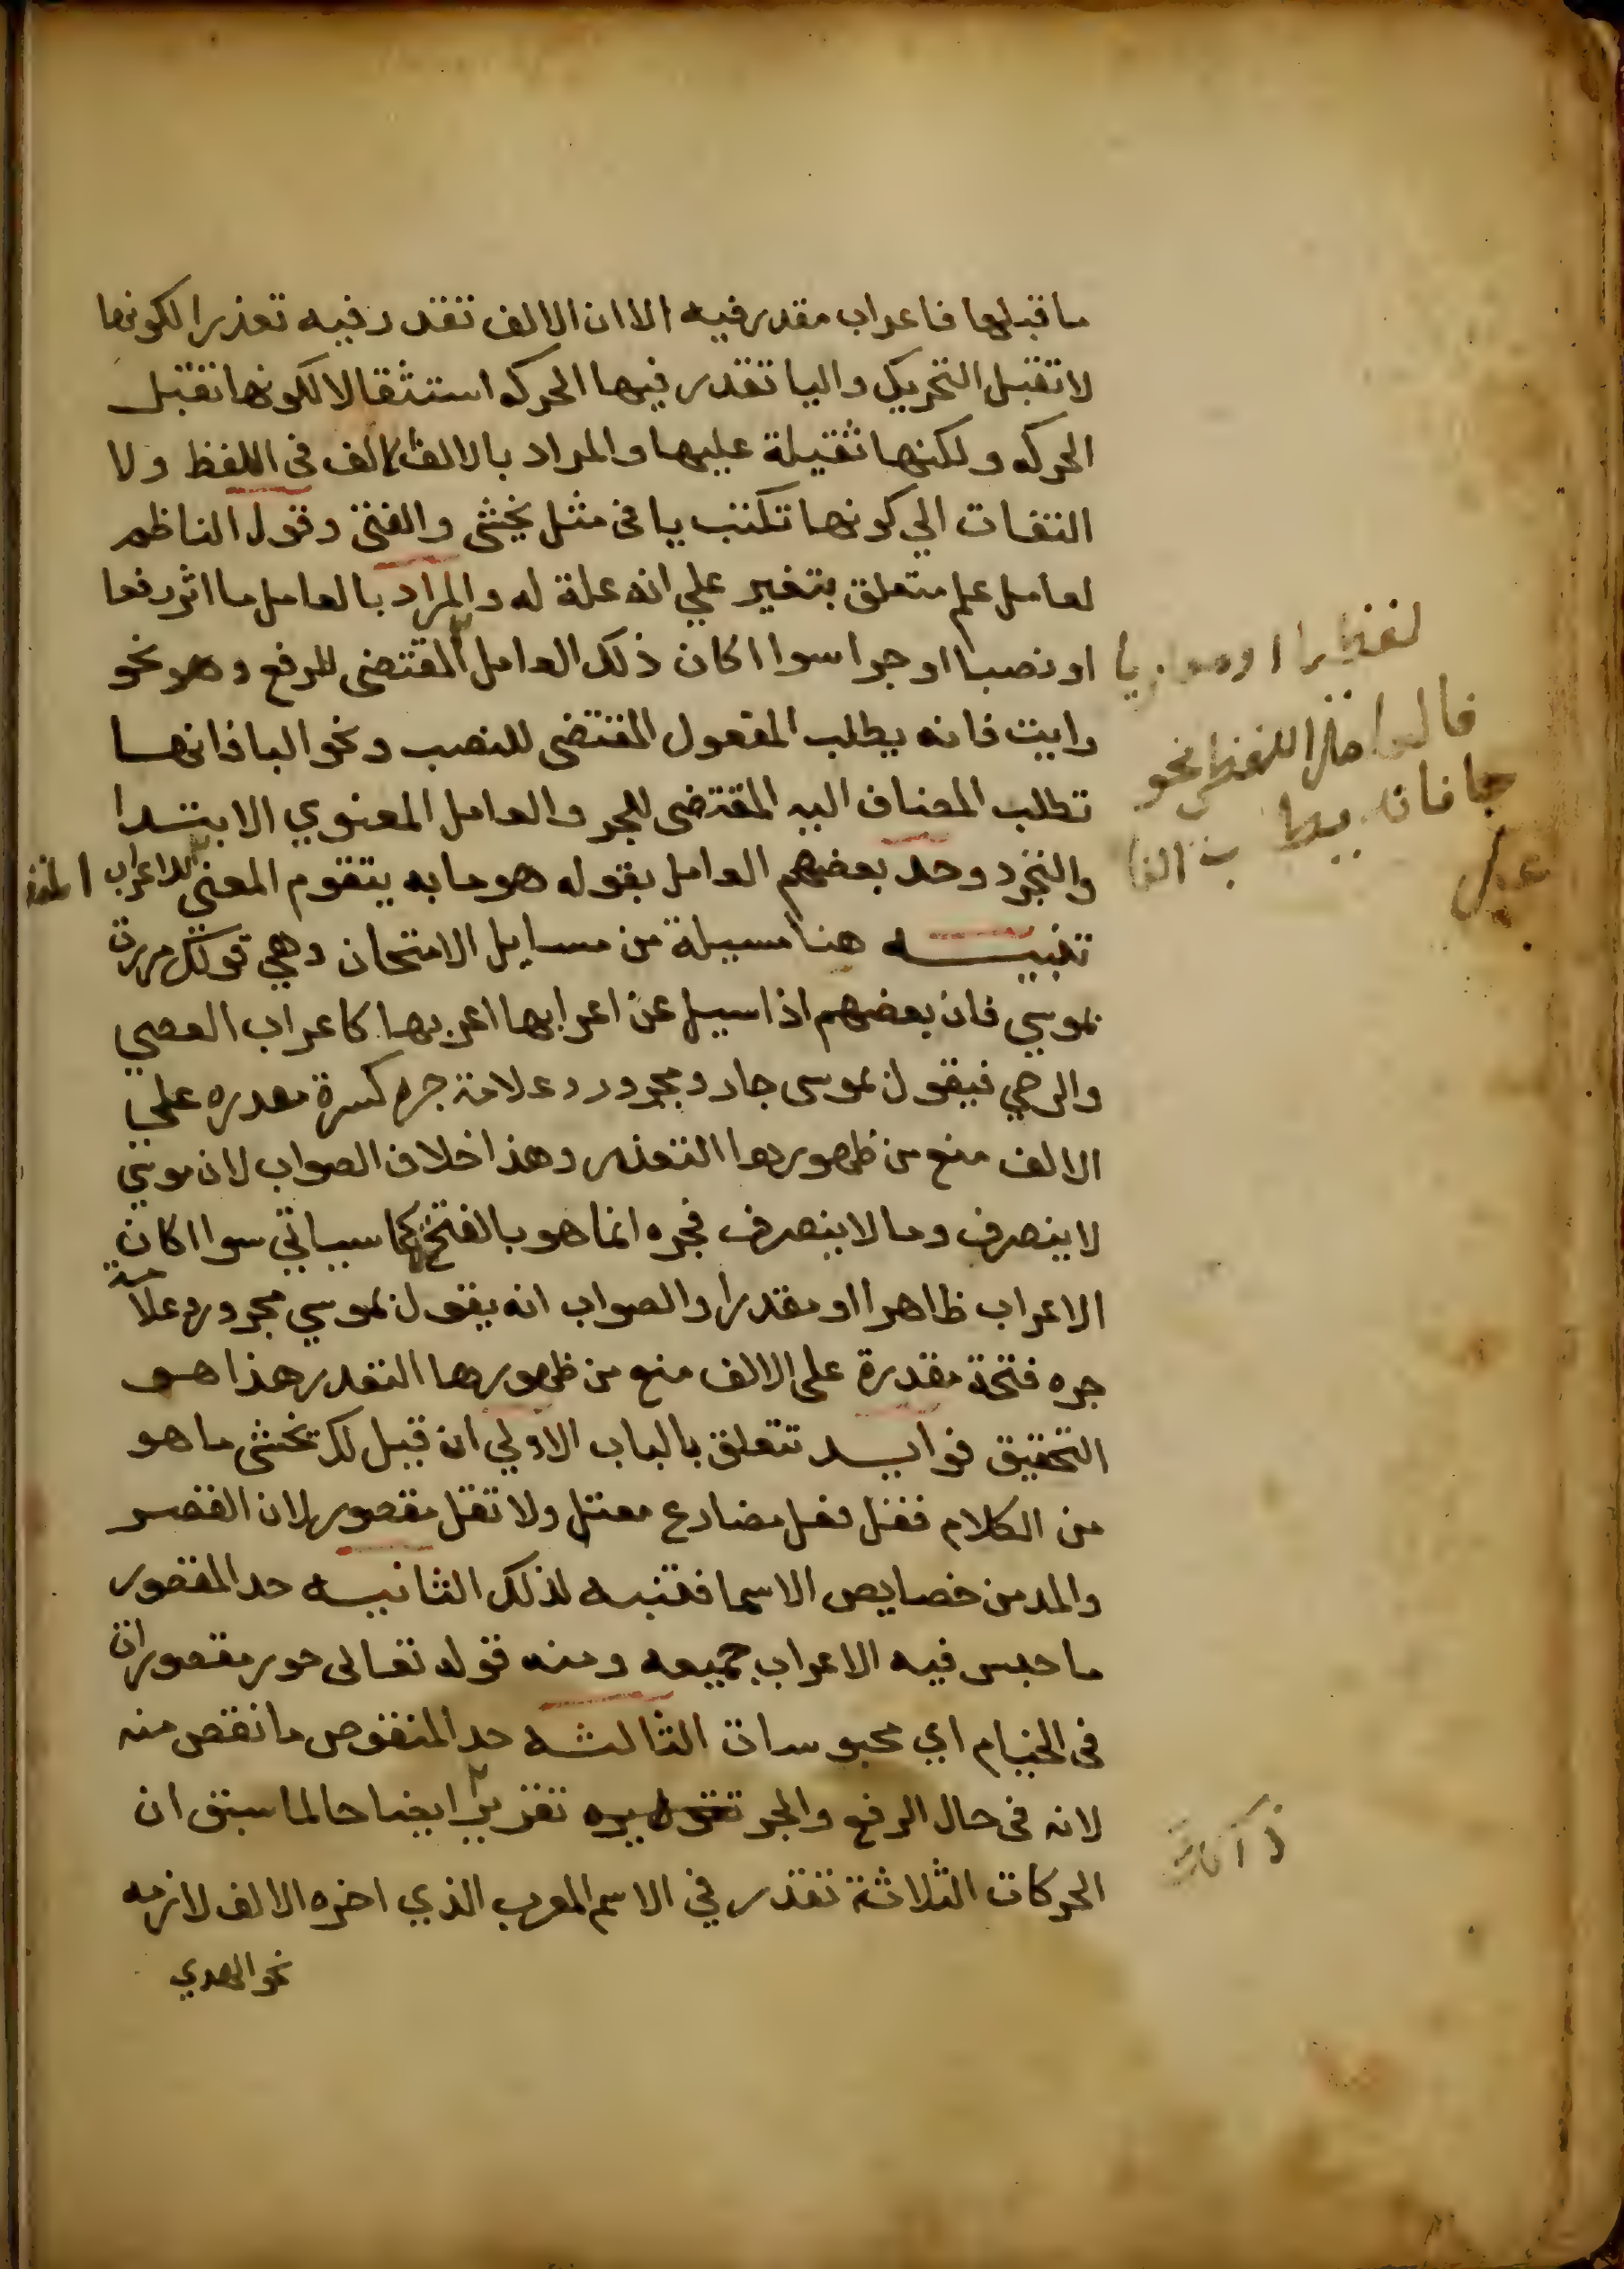 ما قبلها فاعراب مقدر فيه الا ان الالف تقدر فيه تعذرا لكونها
لا تقبل التحريك واليا تقدر فيها الحركه استثقالا لكونها تقبل
الحركه ولكنها ثقيلة عليها والمراد بالالف الالف في اللفظ ولا
التفات الي كونها تكتب يا في مثل يخشى والفتى وقول الناظم
لعامل علم متعلق بتغير علي انه علة له والمراد بالعامل ما اثر رفعا
او نصبا او جرا سوا اكان ذلك العامل المقتضى للرفع وهو نحو
رايت فانه يطلب المفعول المقتضى للنصب ونحو البا فانها
تطلب المضاف اليه المقتضى للجر والعامل المعنوي الابتدا
والتجرد وحد بعضهم العامل بقوله هو ما به يتقوم المعنى للاعراب
تنبيه هنا مسيلة من مسايل الامتحان وهي قولك مررت
بموسي فان بعضهم اذا سيل عن اعرابها اعربها كاعراب العصي
والرحي فيقول بموسى جار ومجرور وعلامة جره كسرة مقدره علي
الالف منع من ظهورها التعذر وهذا خلاف الصواب لان موسي
لا ينصرف وما لا ينصرف فجره انما هو بالفتحة كما سياتي سوا اكان
الاعراب ظاهرا او مقدرا والصواب انه يقول بموسي مجرور وعلامة
جره فتحة مقدرة على الالف منع من ظهورها التعذر هذا هو
التحقيق فوايد تتعلق بالباب الاولي ان قيل لك تخشى ما هو
من الكلام فقل فعل مضارع معتل ولا تقل مقصور لان القصر
والمد من خصايص الاسما فتنبه لذلك الثانيه حد المقصور
ما حبس فيه الاعراب جميعه ومنه قوله تعالى حور مقصورات
في الخيام اي محبوسات الثالثه حد المنقوص ما نقص منه
لانه في حال الرفع والجر ايضا حا لما سبق ان
الحركات الثلاثة تقدر في الاسم المعرب الذي اخره الالف لازمه
نحو الهدي
لفظيا او معنويا
فالعامل اللفظي نحو
جا فانه يطلب الفا
عل